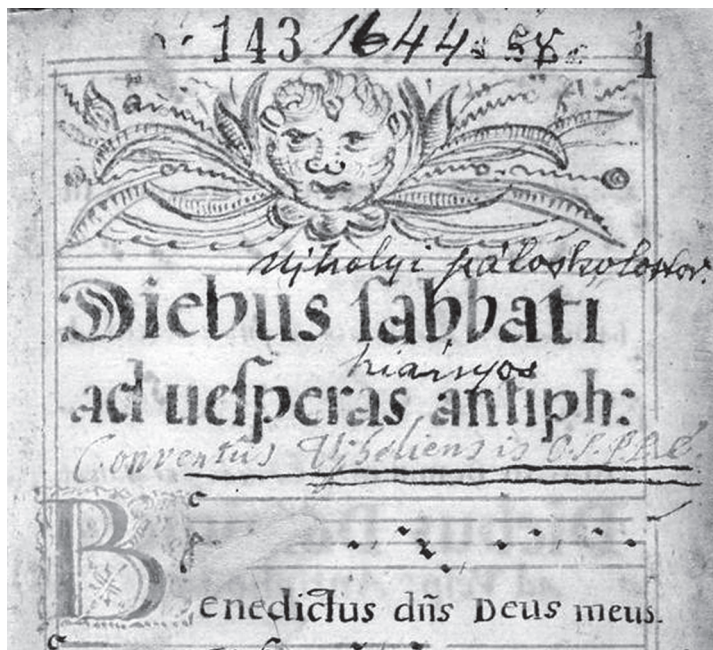 143 1644. 58. 1
Ujhelyi páloskolostor.
Diebus ſabbati
hiányos
ad ueſperas antiph:
Conventûs Ujheliensis O.S.P.P.E.
Benedictus dñs Deus meus.